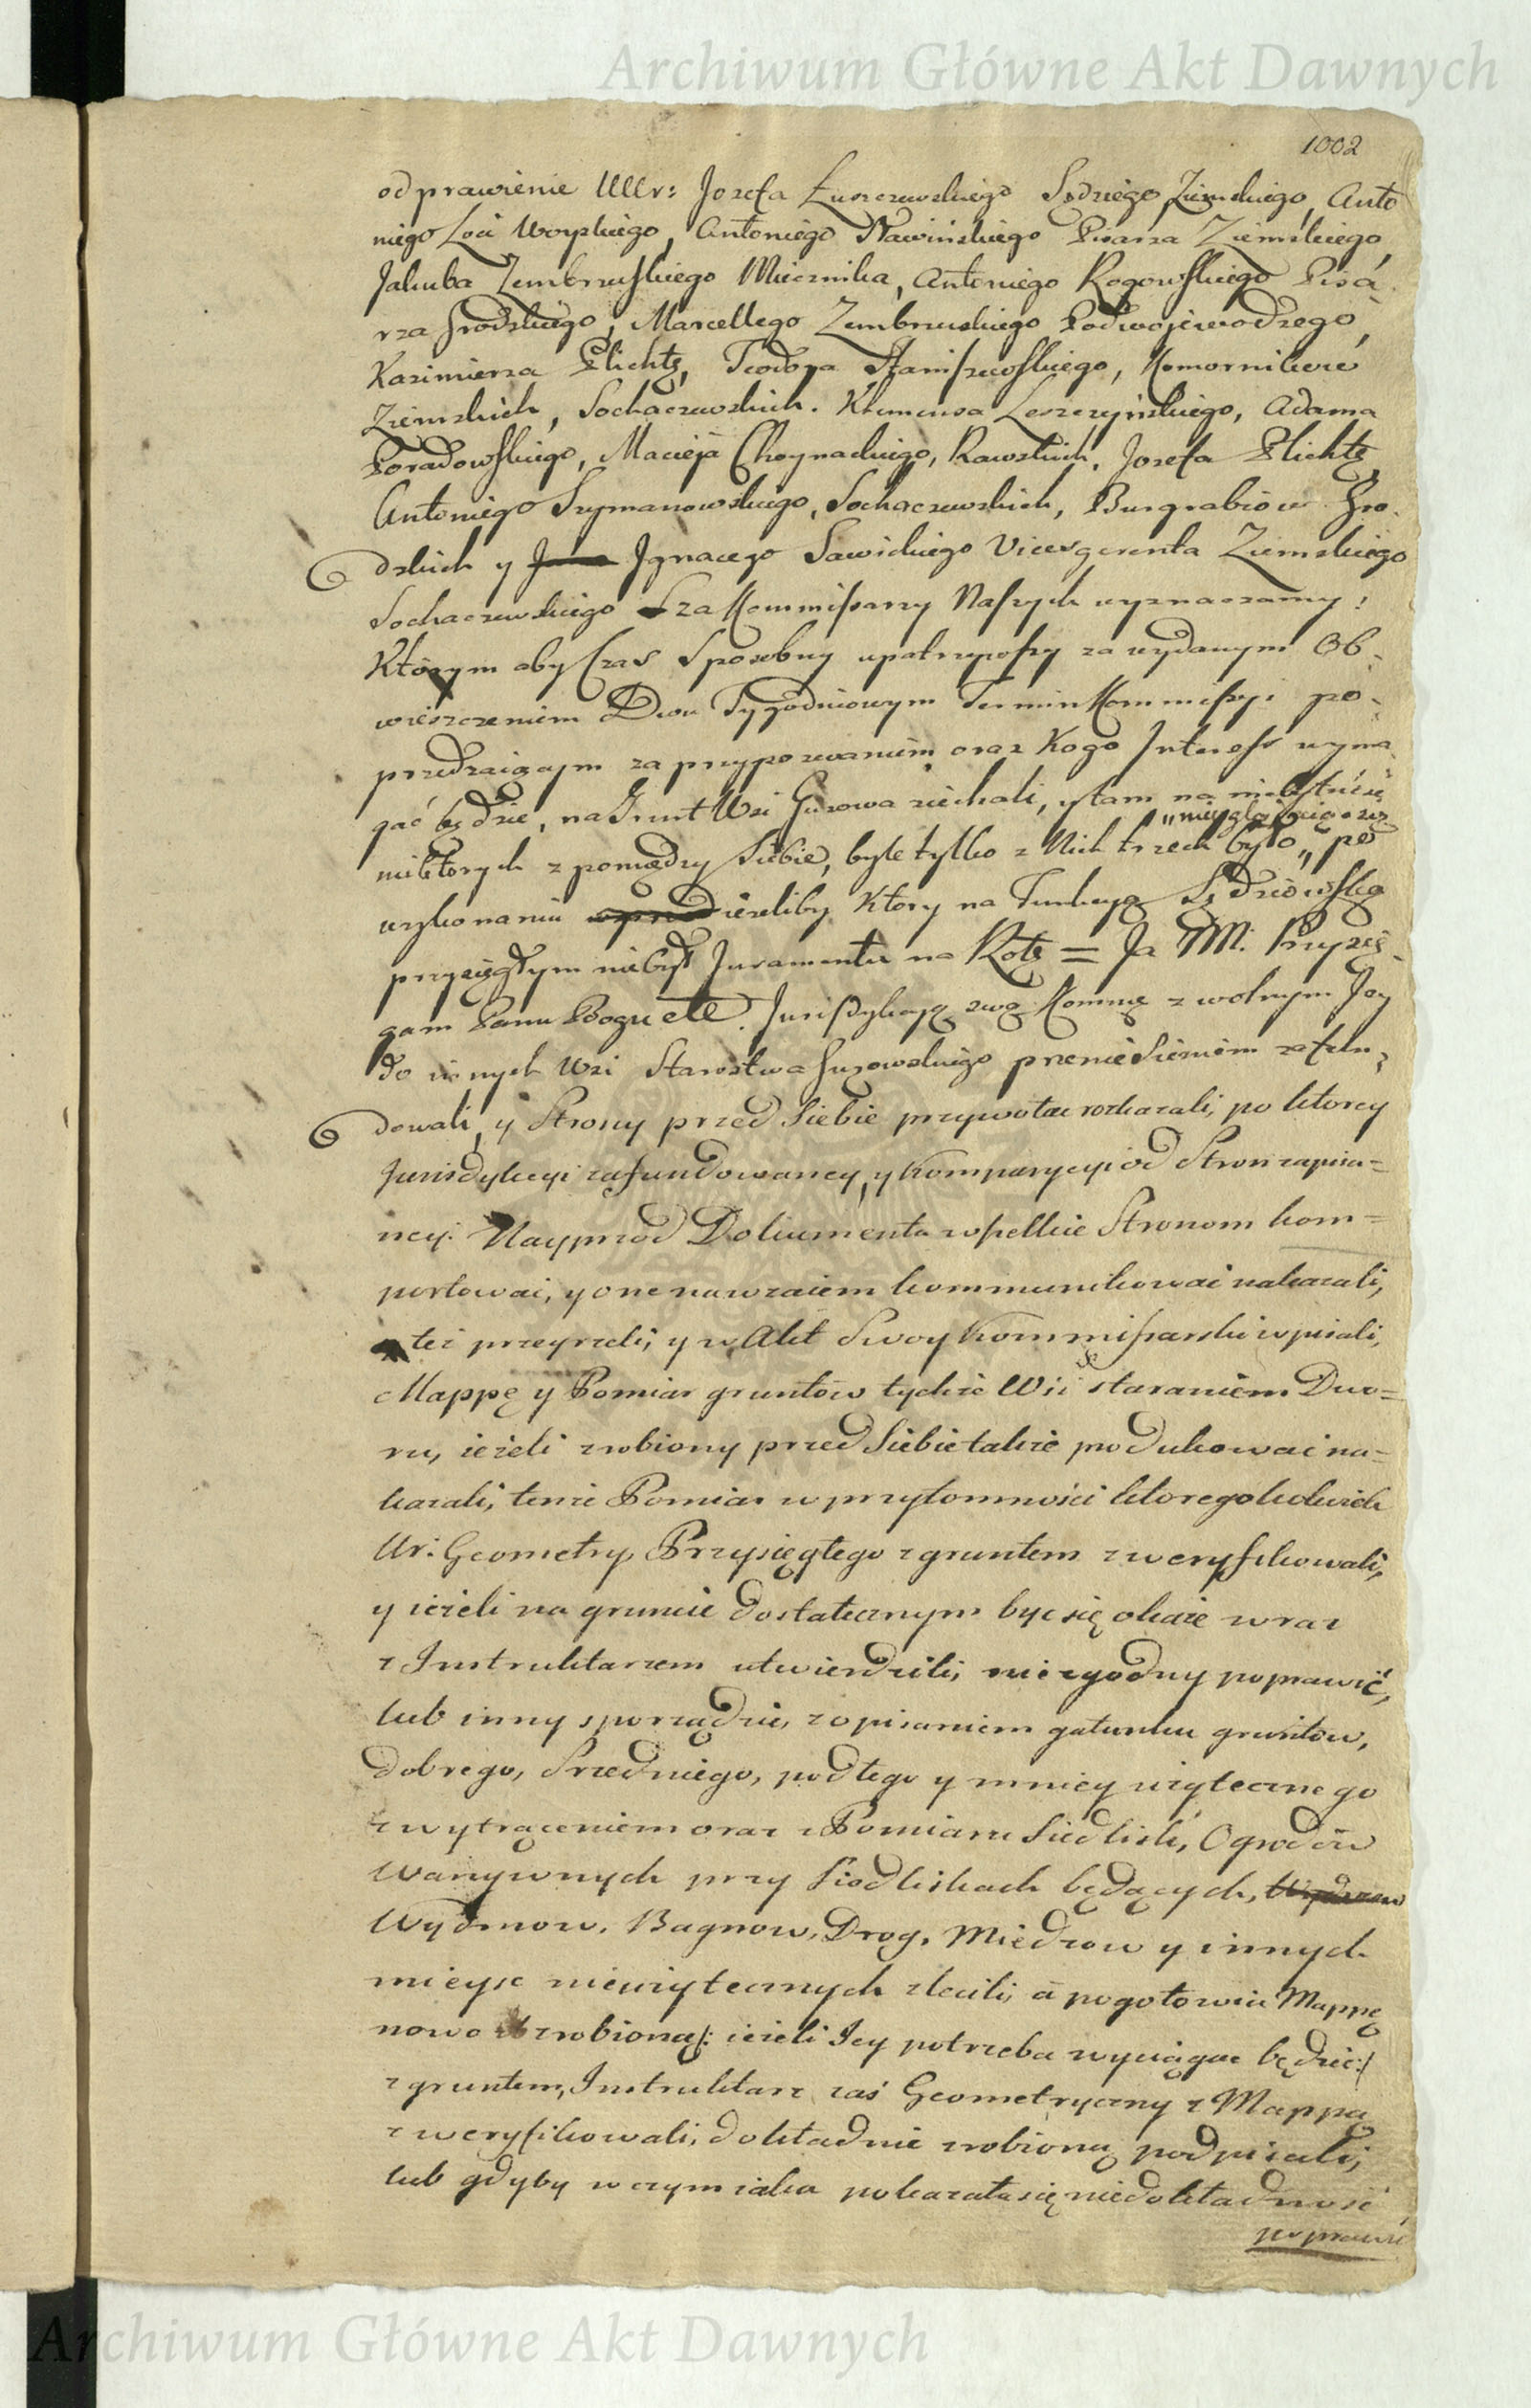 Archiwum Główne Akt Dawnych
1002
odprawienie UUr: Jozefa Łuszczewskiego Sędziego Ziemskiego, Anto
niego Loci Woyskiego, Antoniego Nawińskiego Pisarza Ziemskiego,
Jakuba Zembrzuskiego Miecznika, Antoniego Rogowskiego Pisa-
rza Grodzkiego, Marcellego Zembrzuskiego Podwojewodzego,
Kazimierza Plichtę, Teodora Staniszewskiego, Komorników
Ziemskich, Sochaczewskich. Klemensa Leszczyńskiego, Adama
Poradowskiego, Macieja Choynackiego, Rawskich, Jozefa Plichtę,
Antoniego Szymanowskiego, Sochaczewskich, Burgrabiow Gro-
dzkich y Ignacego Sawickiego Vicesgerenta Ziemskiego
Sochaczewskiego za Kommissarzy Naszych wyznaczamy;
Którym aby Czas Sposobny upatrzywszy za wydanym Ob-
wieszczeniem Dwu Tygodniowym Termin Kommissyi po-
przedzaiącym za przypozwaniem oraz Kogo Interess wyma
gać będzie, na Grunt Wsi Guzowa ziechali, y tam na niebytność
niektorych z pomiędzy Siebie, byle tylko z Nich trzech było,, po
wykonaniu ieżeliby Ktory na Funkcyą Sędziowską
przysięgłym niebył Juramentu na Rotę = Ja M. Przysię-
gam Panu Bogu etc. Jurisdykcyą swą Kommą z wolnym Jey
do innych Wsi Starostwa Guzowskiego przeniesieniem zafun-
dowali, y Strony przed Siebie przywołac rozkazali, po ktorey
Jurisdykcyi zafundowaney, y Komparycyi od Stron zapisa=
ney: Nayprzod Dokumenta wszelkie Stronom kom=
portowac, y one nawzaiem kommunikowac nakazali,
też przeyrzeli, y w Akt Swoy Kommissarski wpisali,
Mappę y Pomiar gruntów tychże Wsi staraniem Dwo=
ru, ieżeli zrobiony przed Siebie takze produkowac na=
kazali, tenże Pomiar w przytomności ktoregokolwiek
Ur: Geometry Przysięgłego z gruntem zweryfikowali,
y ieżeli na gruncie dostatecznym byc się okaże wraz
z Instruktarzem utwierdzili, niezgodny poprawić,
lub inny sporządzić, z opisaniem gatunku gruntow,
dobrego, Srzedniego, podłego y mniey użytecznego
z wytrąceniem oraz z Pomiaru Siedlisk, Ogrodów
Warzywnych przy Siedliskach będących,
Wydmow, Bagnow, Drog, Miedzow y innych
mieysc nieużytecznych zlecili, a pogotowiu Mappę
nowo zrobioną /: ieżeli Jey potrzeba wyciągac będzie :/
z gruntem, Instruktarz zaś Geometryczny z Mappą
zweryfikowali, dokładnie zrobioną podpisali,
lub gdyby w czym iaka pokazała się niedokładność
poprawić
Archiwum Główne Akt Dawnych